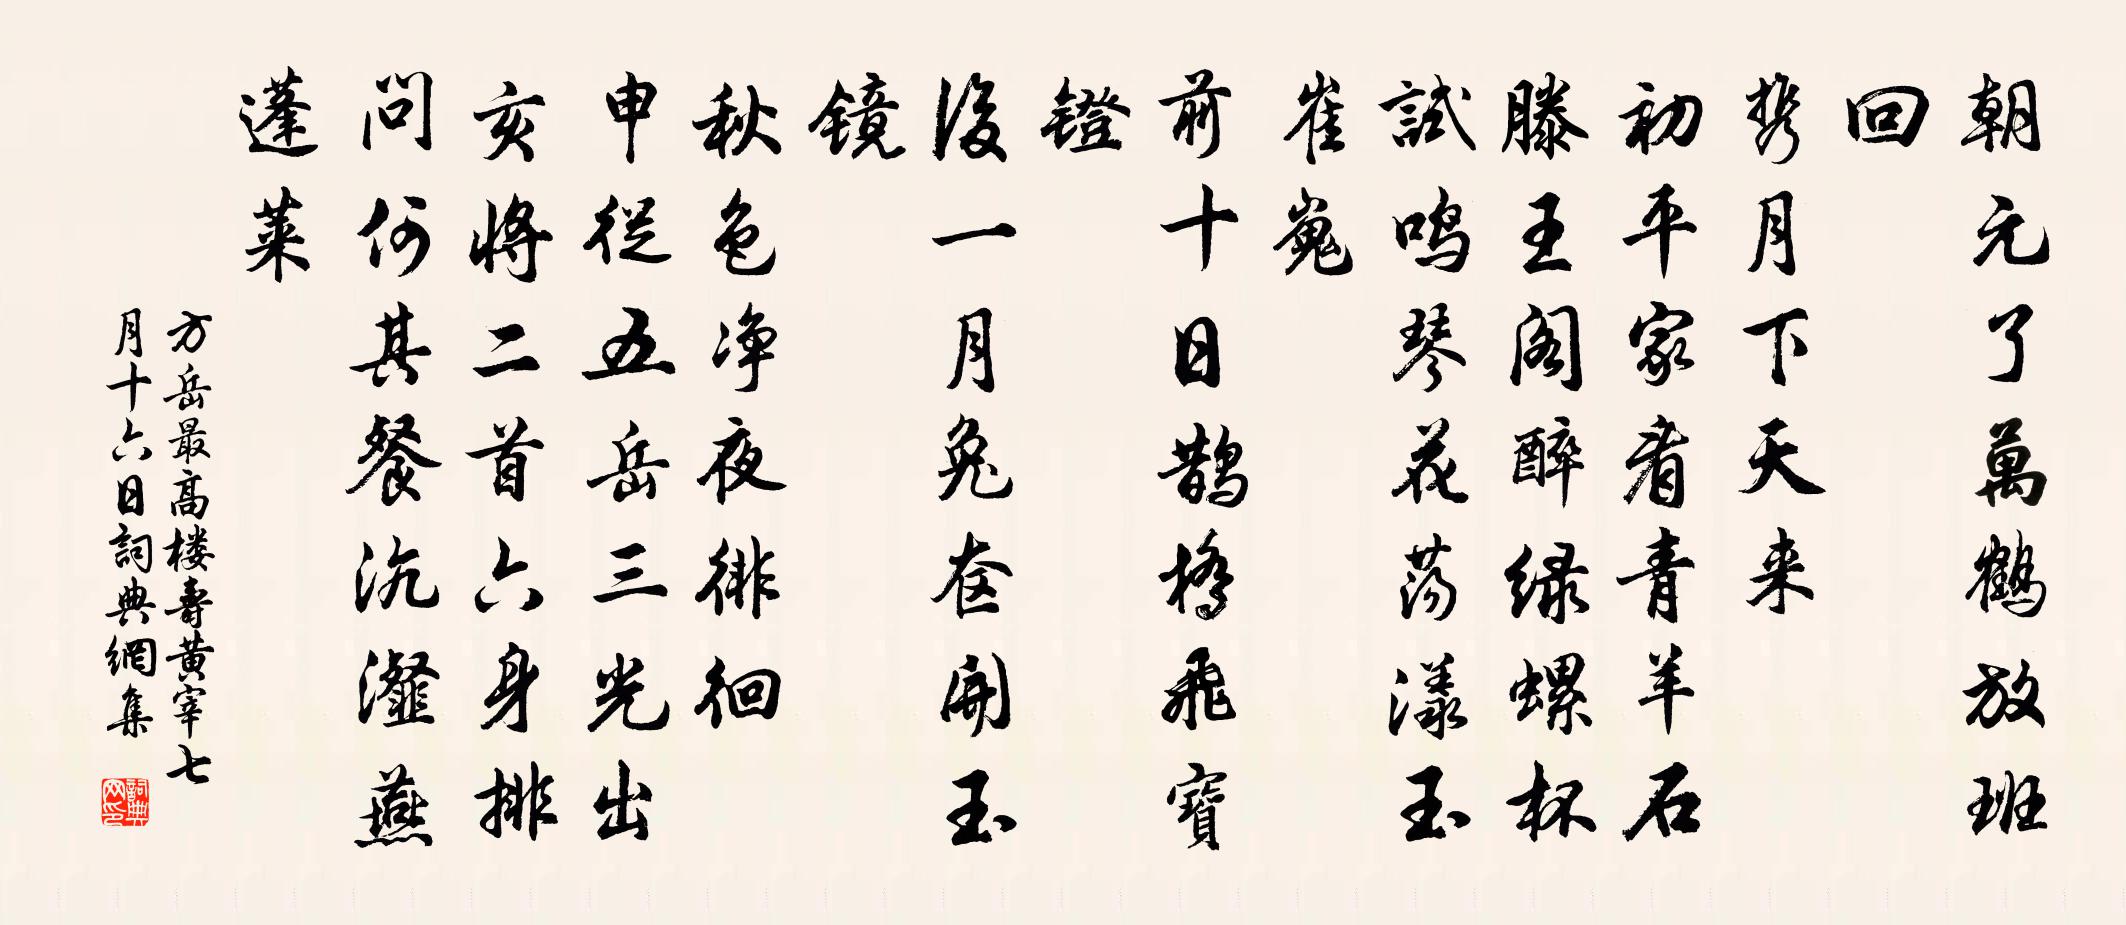 朝元了萬鶴放班
回
携月下天来
初平家看青羊石
滕王阁醉绿螺杯
試鸣琴花荡漾玉
崔嵬
前十日鹊橋飛寶
镫
後一月兔奁開玉
镜
秋色净夜徘徊
申從五岳三光出
亥將二首六身排
问何其餐沆瀣燕
蓬莱
方岳最高楼壽黄宰七
月十六日詞典網集